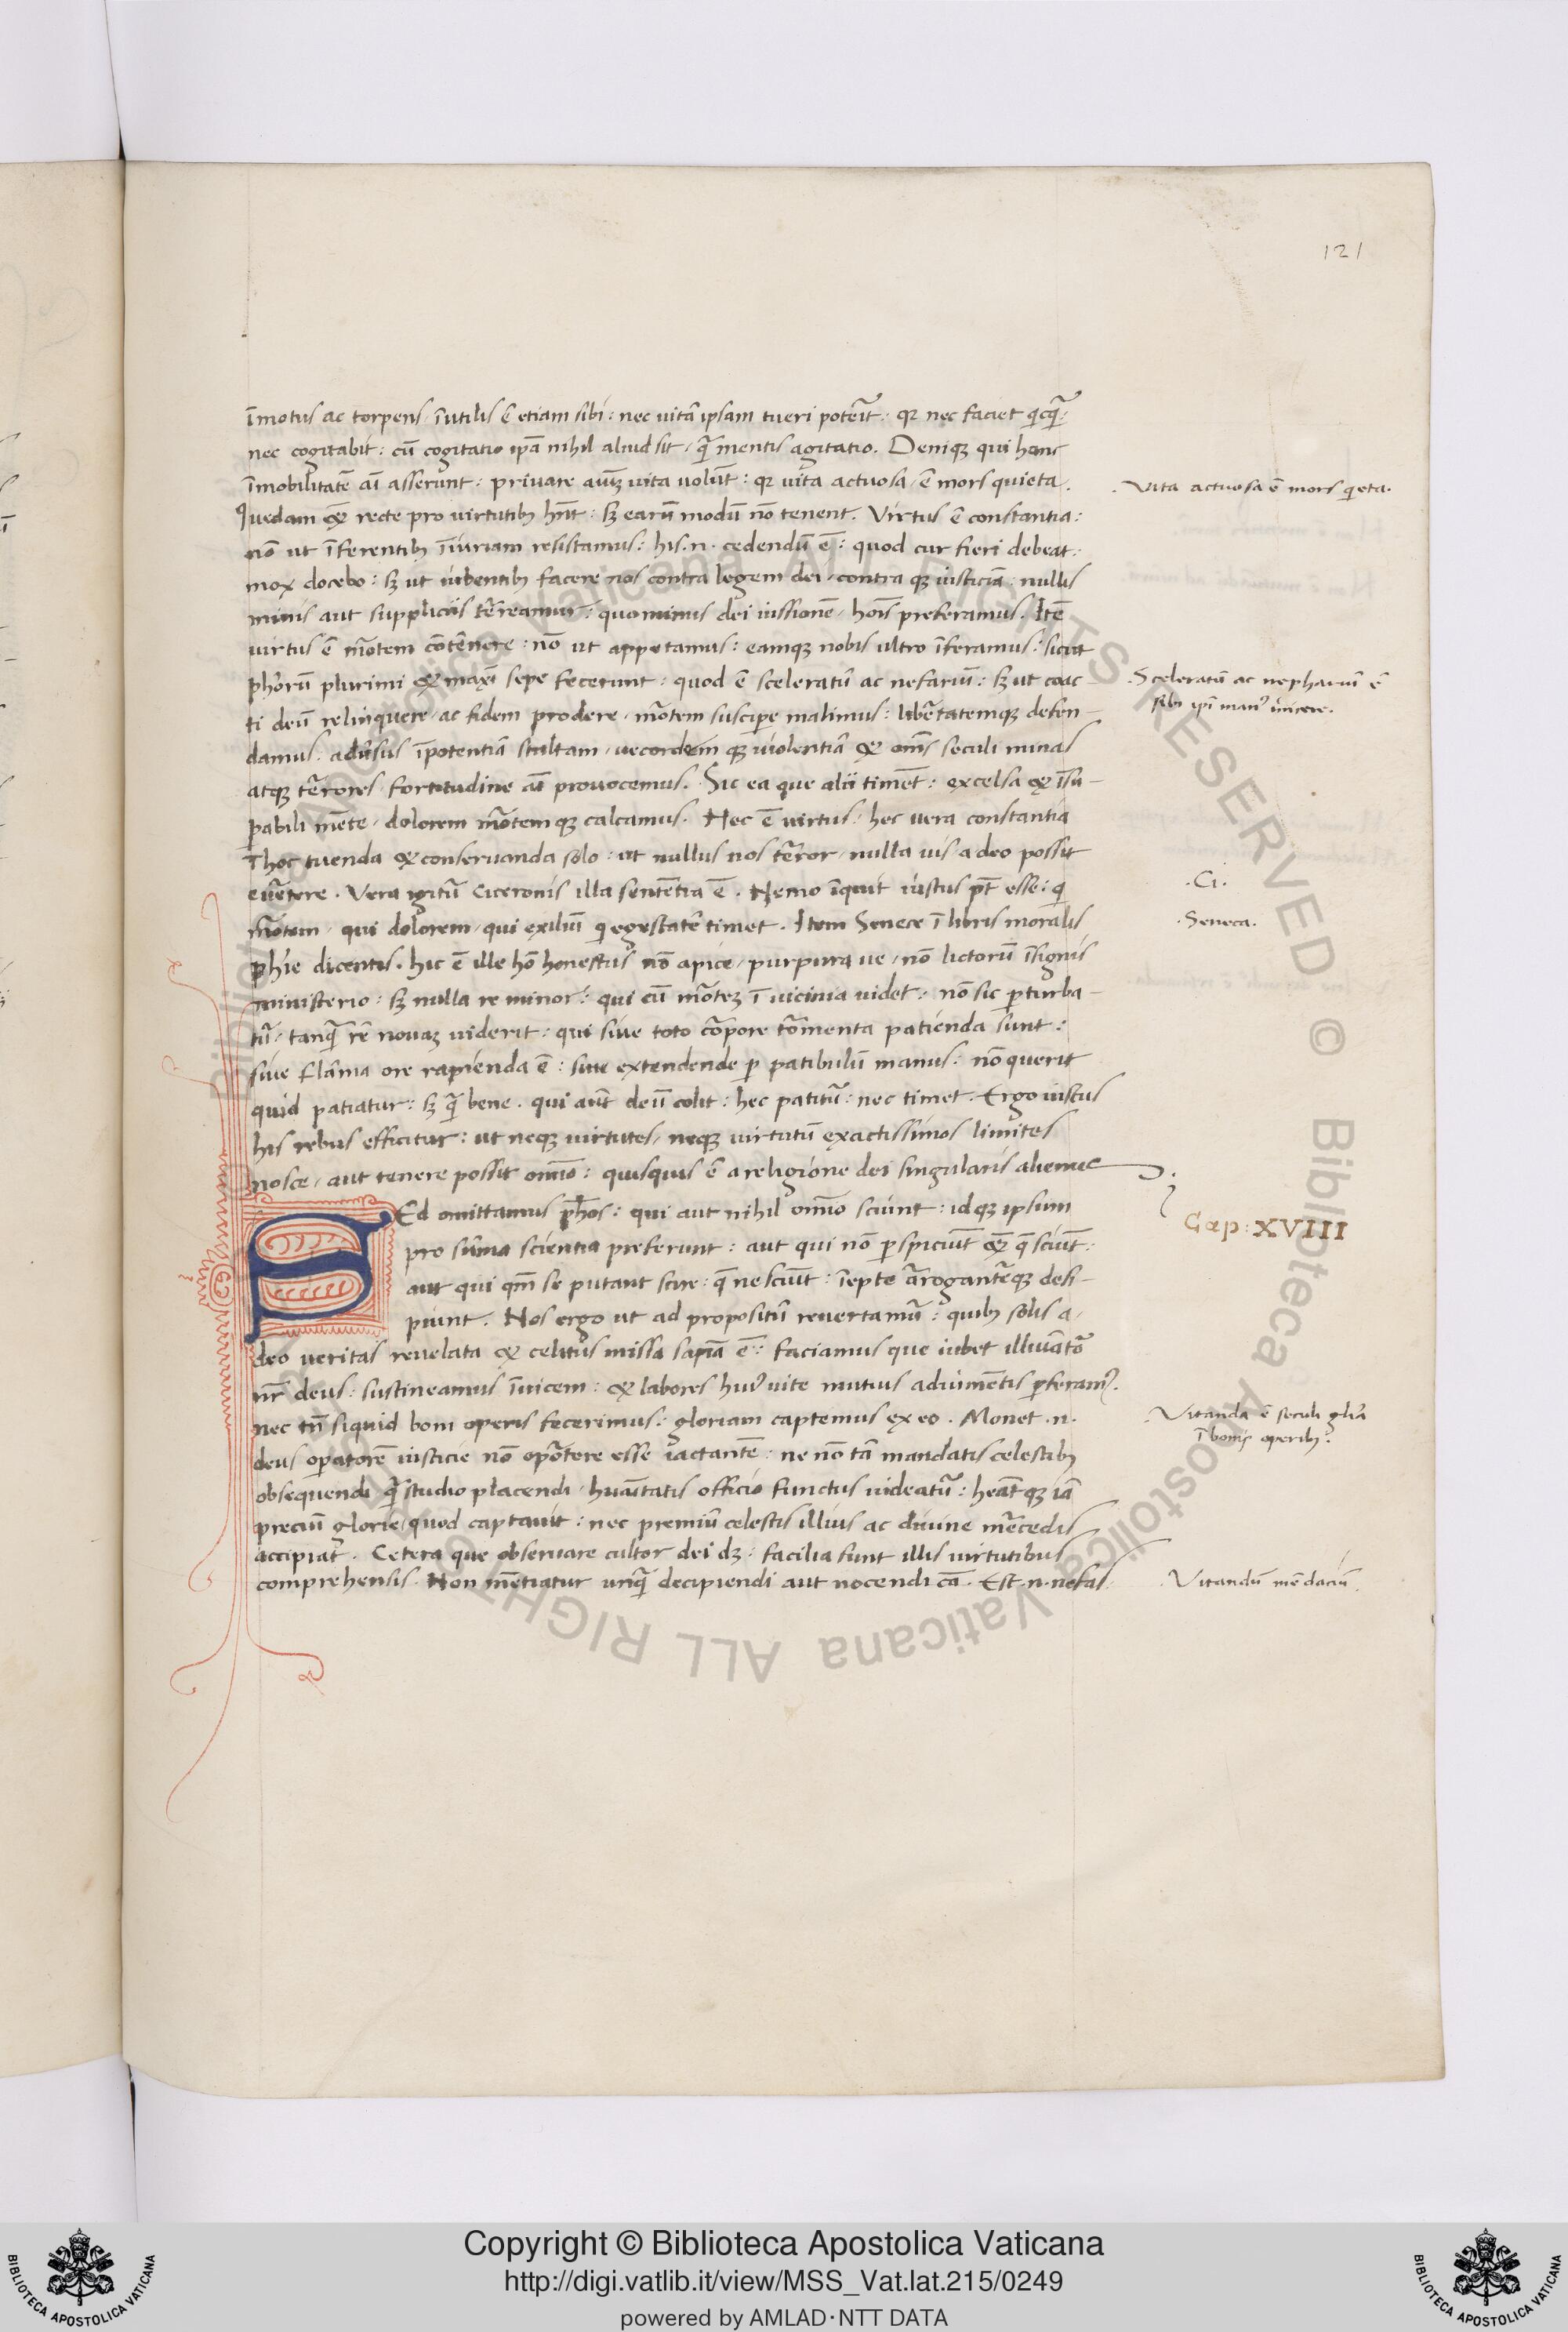 121
īmotus ac torpens / īutilis ē etiam sibi : nec uitā ipsam tueri poterit : qꝛ nec faciet qicq̄ :
nec cogitabit : cū cogitatio ip̄a nihil aliud sit / q̄ mentis agitatio . Deniqꝫ qui hanc
īmobilitatē aī asserunt : priuare aīuꝫ uita uolūt : qꝛ uita actuosa / ē mors quieta .
Quedam & recte pro uirtutibꝫ hn̄t : sꝫ earū modū nō tenent . Virtus ē constantia :
nō ut īferentibꝫ īiuriam resistamus : his .n. cedendū ē : quod cur fieri debeat :
mox docebo : sꝫ ut iubentibꝫ facere nos contra legem dei / contra qꝫ iusticiā : nullis
minis aut suppliciis tēreamur : quominus dei iussionē / hoīs preferamus . Itē
uirtus ē mōtem cōtēnere : nō ut appetamus : eamqꝫ nobis ultro īferamus : sicut
ph̄orū plurimi & maxī sepe fecerunt : quod ē sceleratū ac nefariū : sꝫ ut coac –
ti deū relinquere / ac fidem prodere / mōtem suscipe malimus : libertatemqꝫ defen –
damus / adūsus īpotentiā stultam / uecordem qꝫ uiolentiā & om̄s seculi minas
atqꝫ tērores fortitudine aī prouocemus . Sic ea que alii timēt : excelsa & īsu –
pabili mēte / dolorem mōtem qꝫ calcamus . Hec ē uirtus / hec uera constantia
ī hoc tuenda & conseruanda solo : ut nullus nos tēror / nulla uis a deo possit
euētere . Vera igitū Ciceronis illa sententia ē . Nemo īquit iustus pt̄ esse : qi
mōtem / qui dolorem / qui exiliū qi egestatē timet . Item Senece ī libris moralis
ph̄ie dicentis . hic ē ille hō honestus nō apice / purpura ue / nō lictorū īsignis
ministerio : sꝫ nulla re minor : qui cū mōteꝫ ī uicinia uidet : nō sic pturba –
tū : tanq̄ rē nouaꝫ uiderit : qui siue toto cōpore tōmenta patienda sunt :
siue flāma ore rapienda ē : siue extendende p patibulū manus : nō querit
quid patiatur : sꝫ q̄ bene . qui aūt deū colit : hec patitū : nec timet . Ergo iustus
his rebus efficitur : ut neqꝫ uirtutes / neqꝫ uirtutū exactissimos limites
nosce / aut tenere possit om̄io : quisquis ē a religione dei singularis alienus
SEd omittamus ph̄os : qui aut nihil om̄io sciunt : idqꝫ ipsum
pro sūma scientia preferunt : aut qui nō pspiciūt & q̄ sciūt :
aut qui qm̄ se putant scire : q̄ nesciūt : īepte ārogantēqꝫ desi –
piunt . Nos ergo ut ad propositū reuertamū : quibꝫ solis a /
deo ueritas reuelata & celitus missa sapīa ē : faciamus que iubet illuīatō
nr̄ deus : sustineamus īuicem : & labores huꝰ uite mutuis adiumētis pferamꝰ .
nec tn̄ siquid boni operis fecerimus : gloriam captemus ex eo . Monet .n.
deus opatorē iusticie nō opōtere esse iactantē : ne nō tā mandatis celestibꝫ
obsequendi q̄ studio placendi / huāitatis officio functus uideatū : heātqꝫ iā
preciū glorie / quod captauit : nec premiū celestis illius ac diuine mēcedis
accipiat . Cetera que obseruare cultor dei dꝫ : facilia sunt illis uirtutibus
comprehensis . Non mētiatur unq̄ decipiendi aut nocendi cā . Est .n. nefas
. Vita actuosa ē mors qieta .
. Sceleratū ac nephariū ē
sibi ipī manꝰ īiicere .
. Ci .
. Seneca .
Cap : XVIII
. Vitanda ē seculi glīa
ī bonis operibꝫ .
. Vitandū mēdaciū .
Biblioteca Apostolica Vaticana ALL RIGHTS RESERVED © Biblioteca Apostolica Vaticana ALL RIGHTS
BIBLIOTECA APOSTOLICA VATICANA
Copyright © Biblioteca Apostolica Vaticana
http://digi.vatlib.it/view/MSS_Vat.lat.215/0249
powered by AMLAD·NTT DATA
BIBLIOTECA APOSTOLICA VATICANA